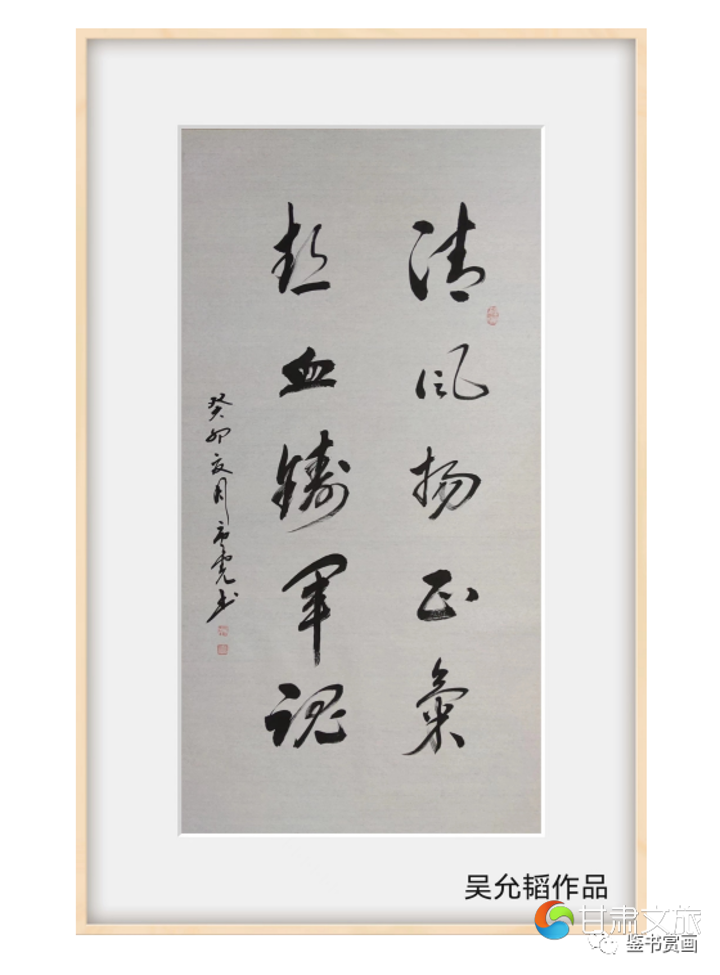 清风扬正氣
热血鑄军魂
癸卯夏月
书
吴允韬作品
甘肃文旅
鉴书赏画